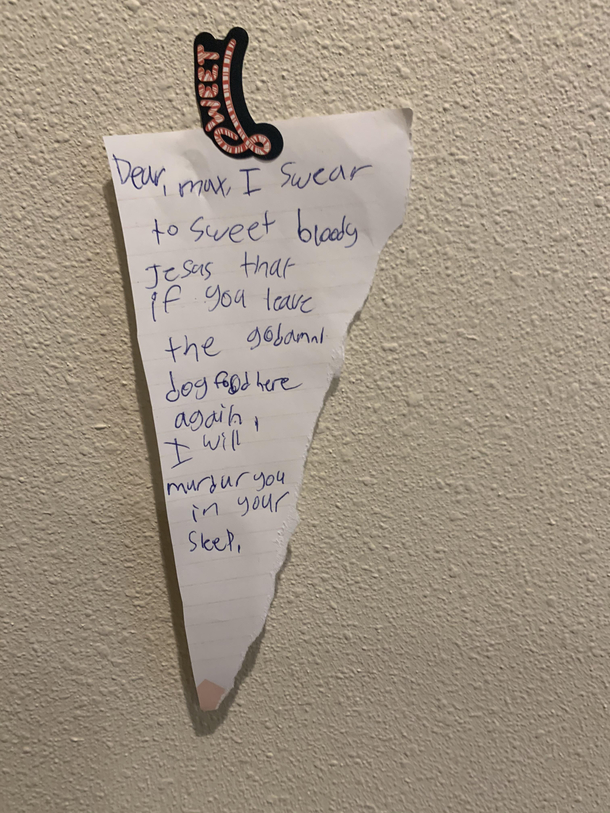 SWEET
Dear, max, I swear
to sweet bloody
Jesas that
if you leave
the gobamnt
dog food here
again,
I will
murdur you
in your
sleep,